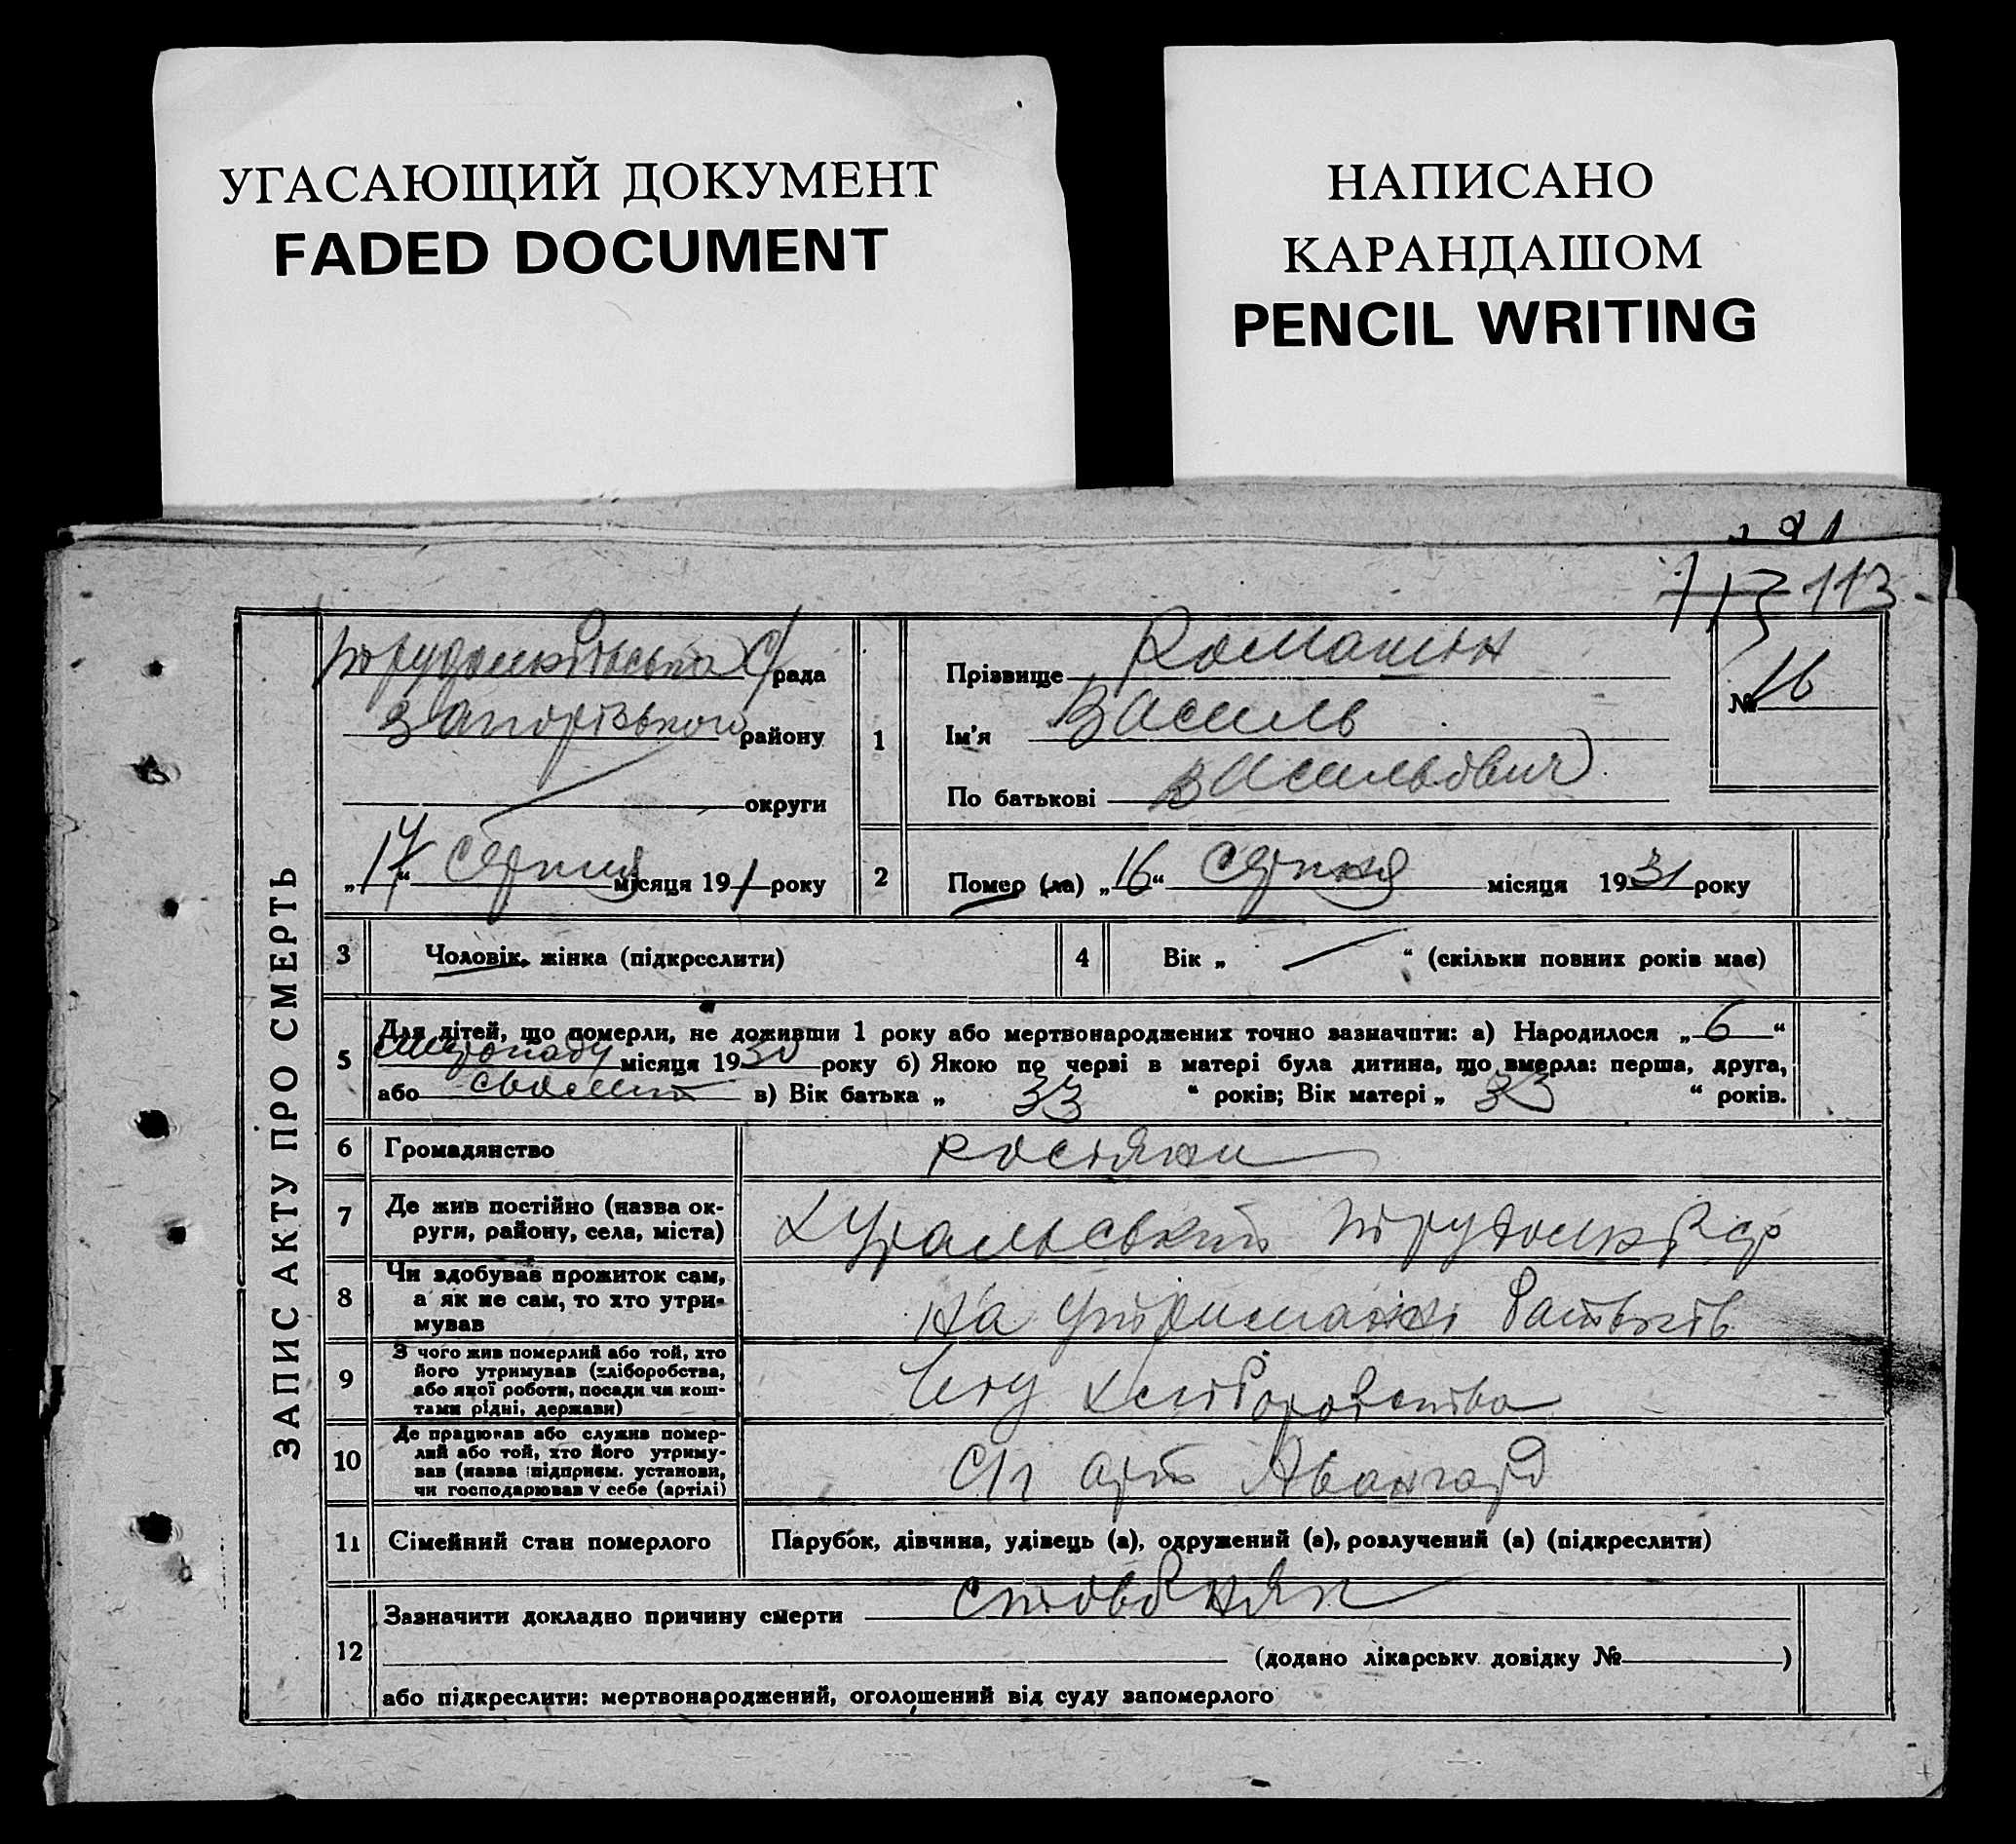 УГАСАЮЩИЙ ДОКУМЕНТ
FADED DOCUMENT
НАПИСАНО
КАРАНДАШОМ
PENCIL WRITING
113 113
ЗАПИС АКТУ ПРО СМЕРТЬ
С/рада
Запорізького району
округи
„17“ Серпня місяця 191 року
1
Прізвище Ромашин
Ім'я Василь
По батькові Васильович
№ 16
2 Помер (ла) „16“ Серпня місяця 1931 року
3 Чоловік, жінка (підкреслити)
4 Вік „ “ (скільки повних років має)
5 Для дітей, що померли, не доживши 1 року або мертвонароджених точно зазначити: а) Народилося „6“
листопаду місяця 1930 року б) Якою по черві в матері була дитина, що вмерла: перша, друга,
або в) Вік батька „33“ років; Вік матері „33“ років.
6 Громадянство росіяни
7 Де жив постійно (назва ок-
руги, району, села, міста)
Х Уральський
8 Чи здобував прожиток сам,
а як не сам, то хто утри-
мував
на утриманні батьків
9 З чого жив померлий або той, хто
його утримував (хліборобства,
або якої роботи, посади чи кош-
тами рідні, держави)
хліборобства
10 Де працював або служив помер-
лий або той, хто його утриму-
вав (назва підприєм. установи,
чи господарював у себе (артілі)
С/г арт Авангард
11 Сімейний стан померлого
Парубок, дівчина, удівець (а), одружений (а), розлучений (а) (підкреслити)
12 Зазначити докладно причину смерти стовбняк
(додано лікарську довідку № )
або підкреслити: мертвонароджений, оголошений від суду запомерлого